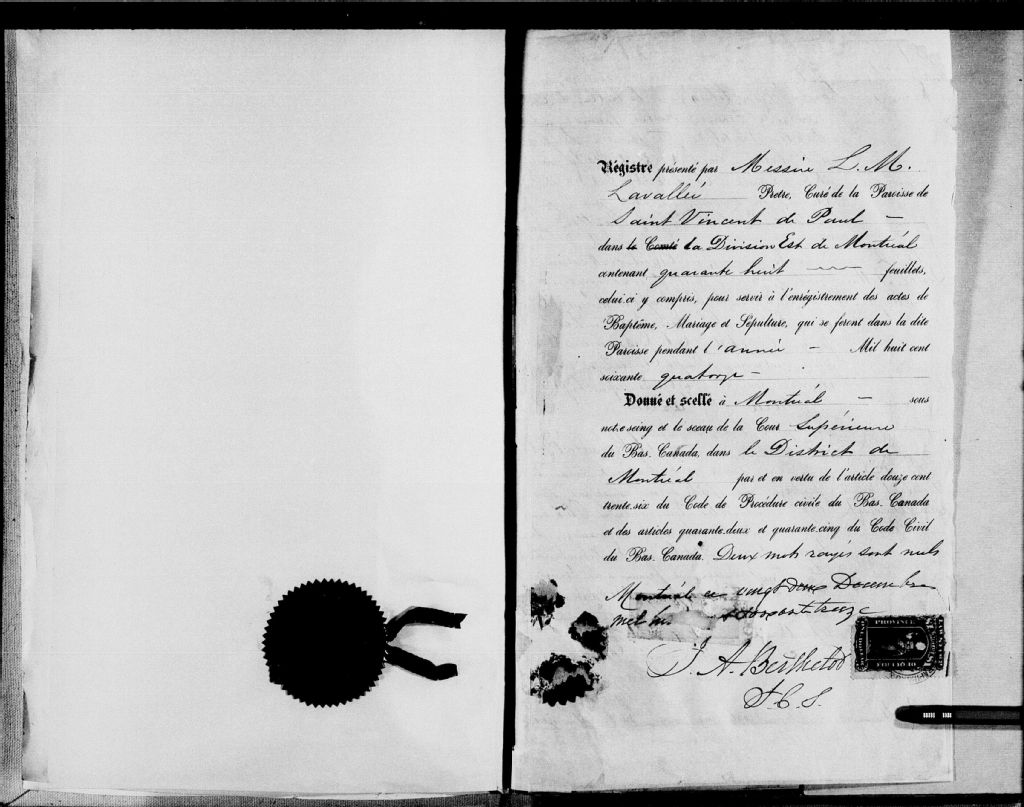 Régistre présenté par Messire L. M.
Lavallée Prêtre, Curé de la Paroisse de
Saint Vincent de Paul –
dans le Comté la Division Est de Montréal
contenant quarante huit feuillets,
celui.ci y compris, pour servir à l'enrégistrement des actes de
Baptême, Mariage et Sépulture, qui se feront dans la dite
Paroisse pendant l'année – Mil huit cent
soixante quatorze –
Donné et scellé à Montréal – sous
notre seing et le sceau de la Cour Supérieure
du Bas. Canada, dans le District de
Montréal par et en vertu de l'article douze cent
trente.six du Code de Procédure civile du Bas. Canada
et des articles quarante.deux et quarante.cinq du Code Civil
du Bas. Canada. Deux mots rayés sont nuls
Montréal ce vingt deux Decembre
mil soixante treize
J. A. Berthelot
J. C. S.
PROVINCE